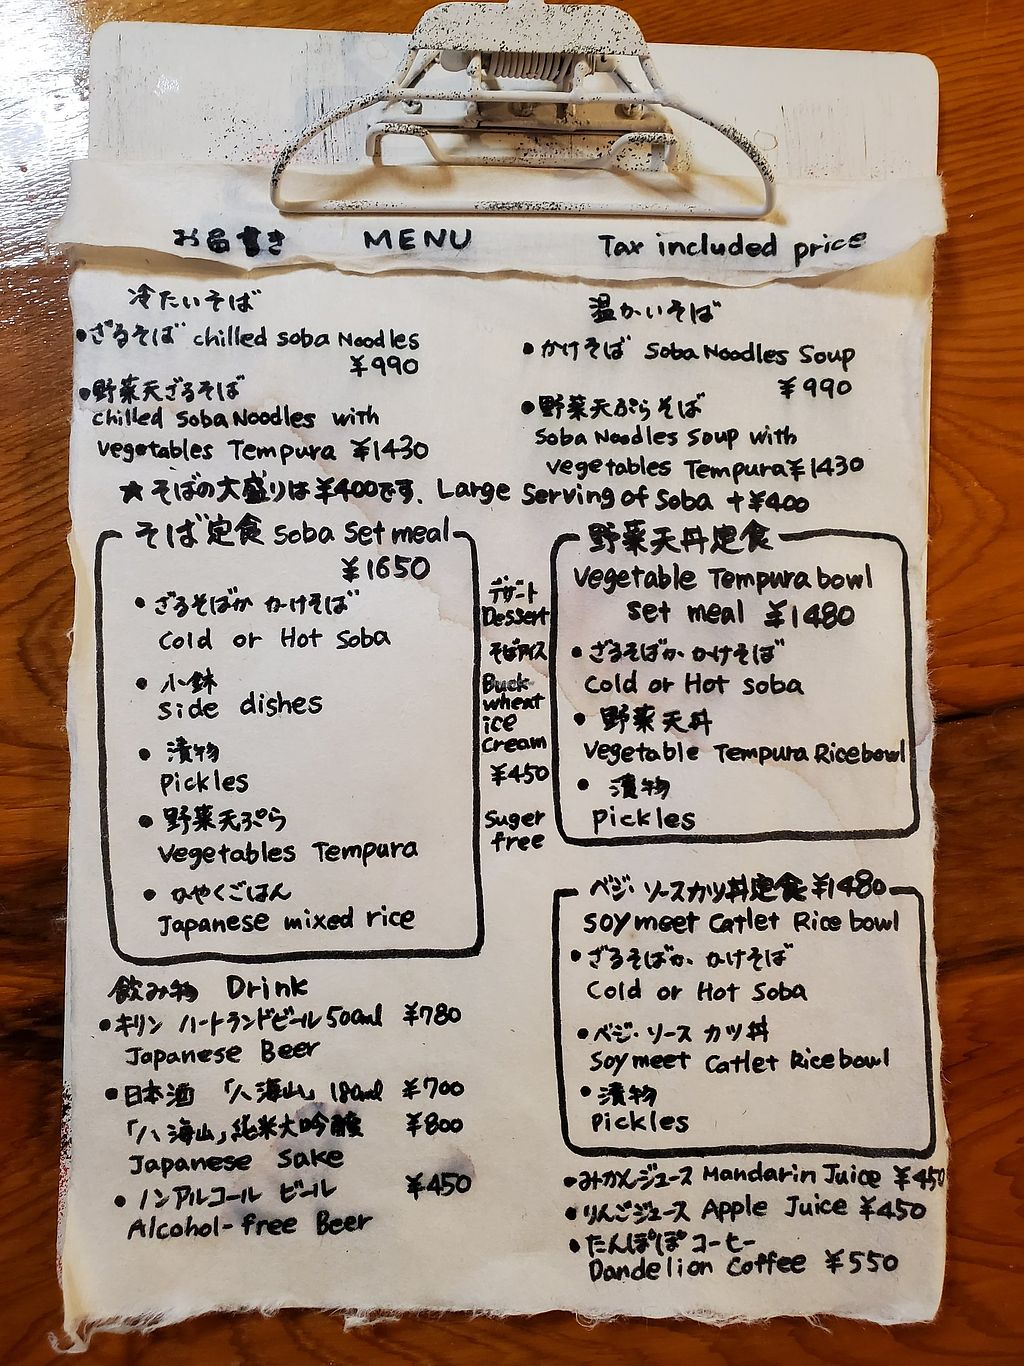 お品書き MENU Tax included price
冷たいそば
•ざるそば chilled soba Noodles
¥990
•野菜天ざるそば
chilled Soba Noodles with
vegetables Tempura ¥1430
温かいそば
•かけそば Soba Noodles Soup
¥990
•野菜天ぷらそば
Soba Noodles Soup with
vegetables Tempura ¥1430
★そばの大盛りは¥400です. Large Serving of Soba +¥400
そば定食 Soba Set meal
¥1650
•ざるそばか かけそば
Cold or Hot Soba
•小鉢
Side dishes
•漬物
Pickles
•野菜天ぷら
Vegetables Tempura
•かやくごはん
Japanese mixed rice
デザート
Dessert
そばアイス
Buck
wheat
ice
cream
¥450
Suger
free
野菜天丼定食
Vegetable Tempura bowl
set meal ¥1480
•ざるそばか かけそば
Cold or Hot soba
•野菜天丼
Vegetable Tempura Rice bowl
•漬物
Pickles
ベジ・ソースカツ丼定食 ¥1480
Soy meet Catlet Rice bowl
•ざるそばか かけそば
Cold or Hot Soba
•ベジ・ソース カツ丼
Soy meet Catlet Rice bowl
•漬物
Pickles
飲み物 Drink
•キリン ハートランドビール 500ml ¥780
Japanese Beer
•日本酒 「八海山」 180ml ¥700
「八海山」純米大吟醸 ¥800
Japanese Sake
•ノンアルコール ビール ¥450
Alcohol-free Beer
•みかんジュース Mandarin Juice ¥450
•りんごジュース Apple Juice ¥450
•たんぽぽコーヒー
Dandelion Coffee ¥550